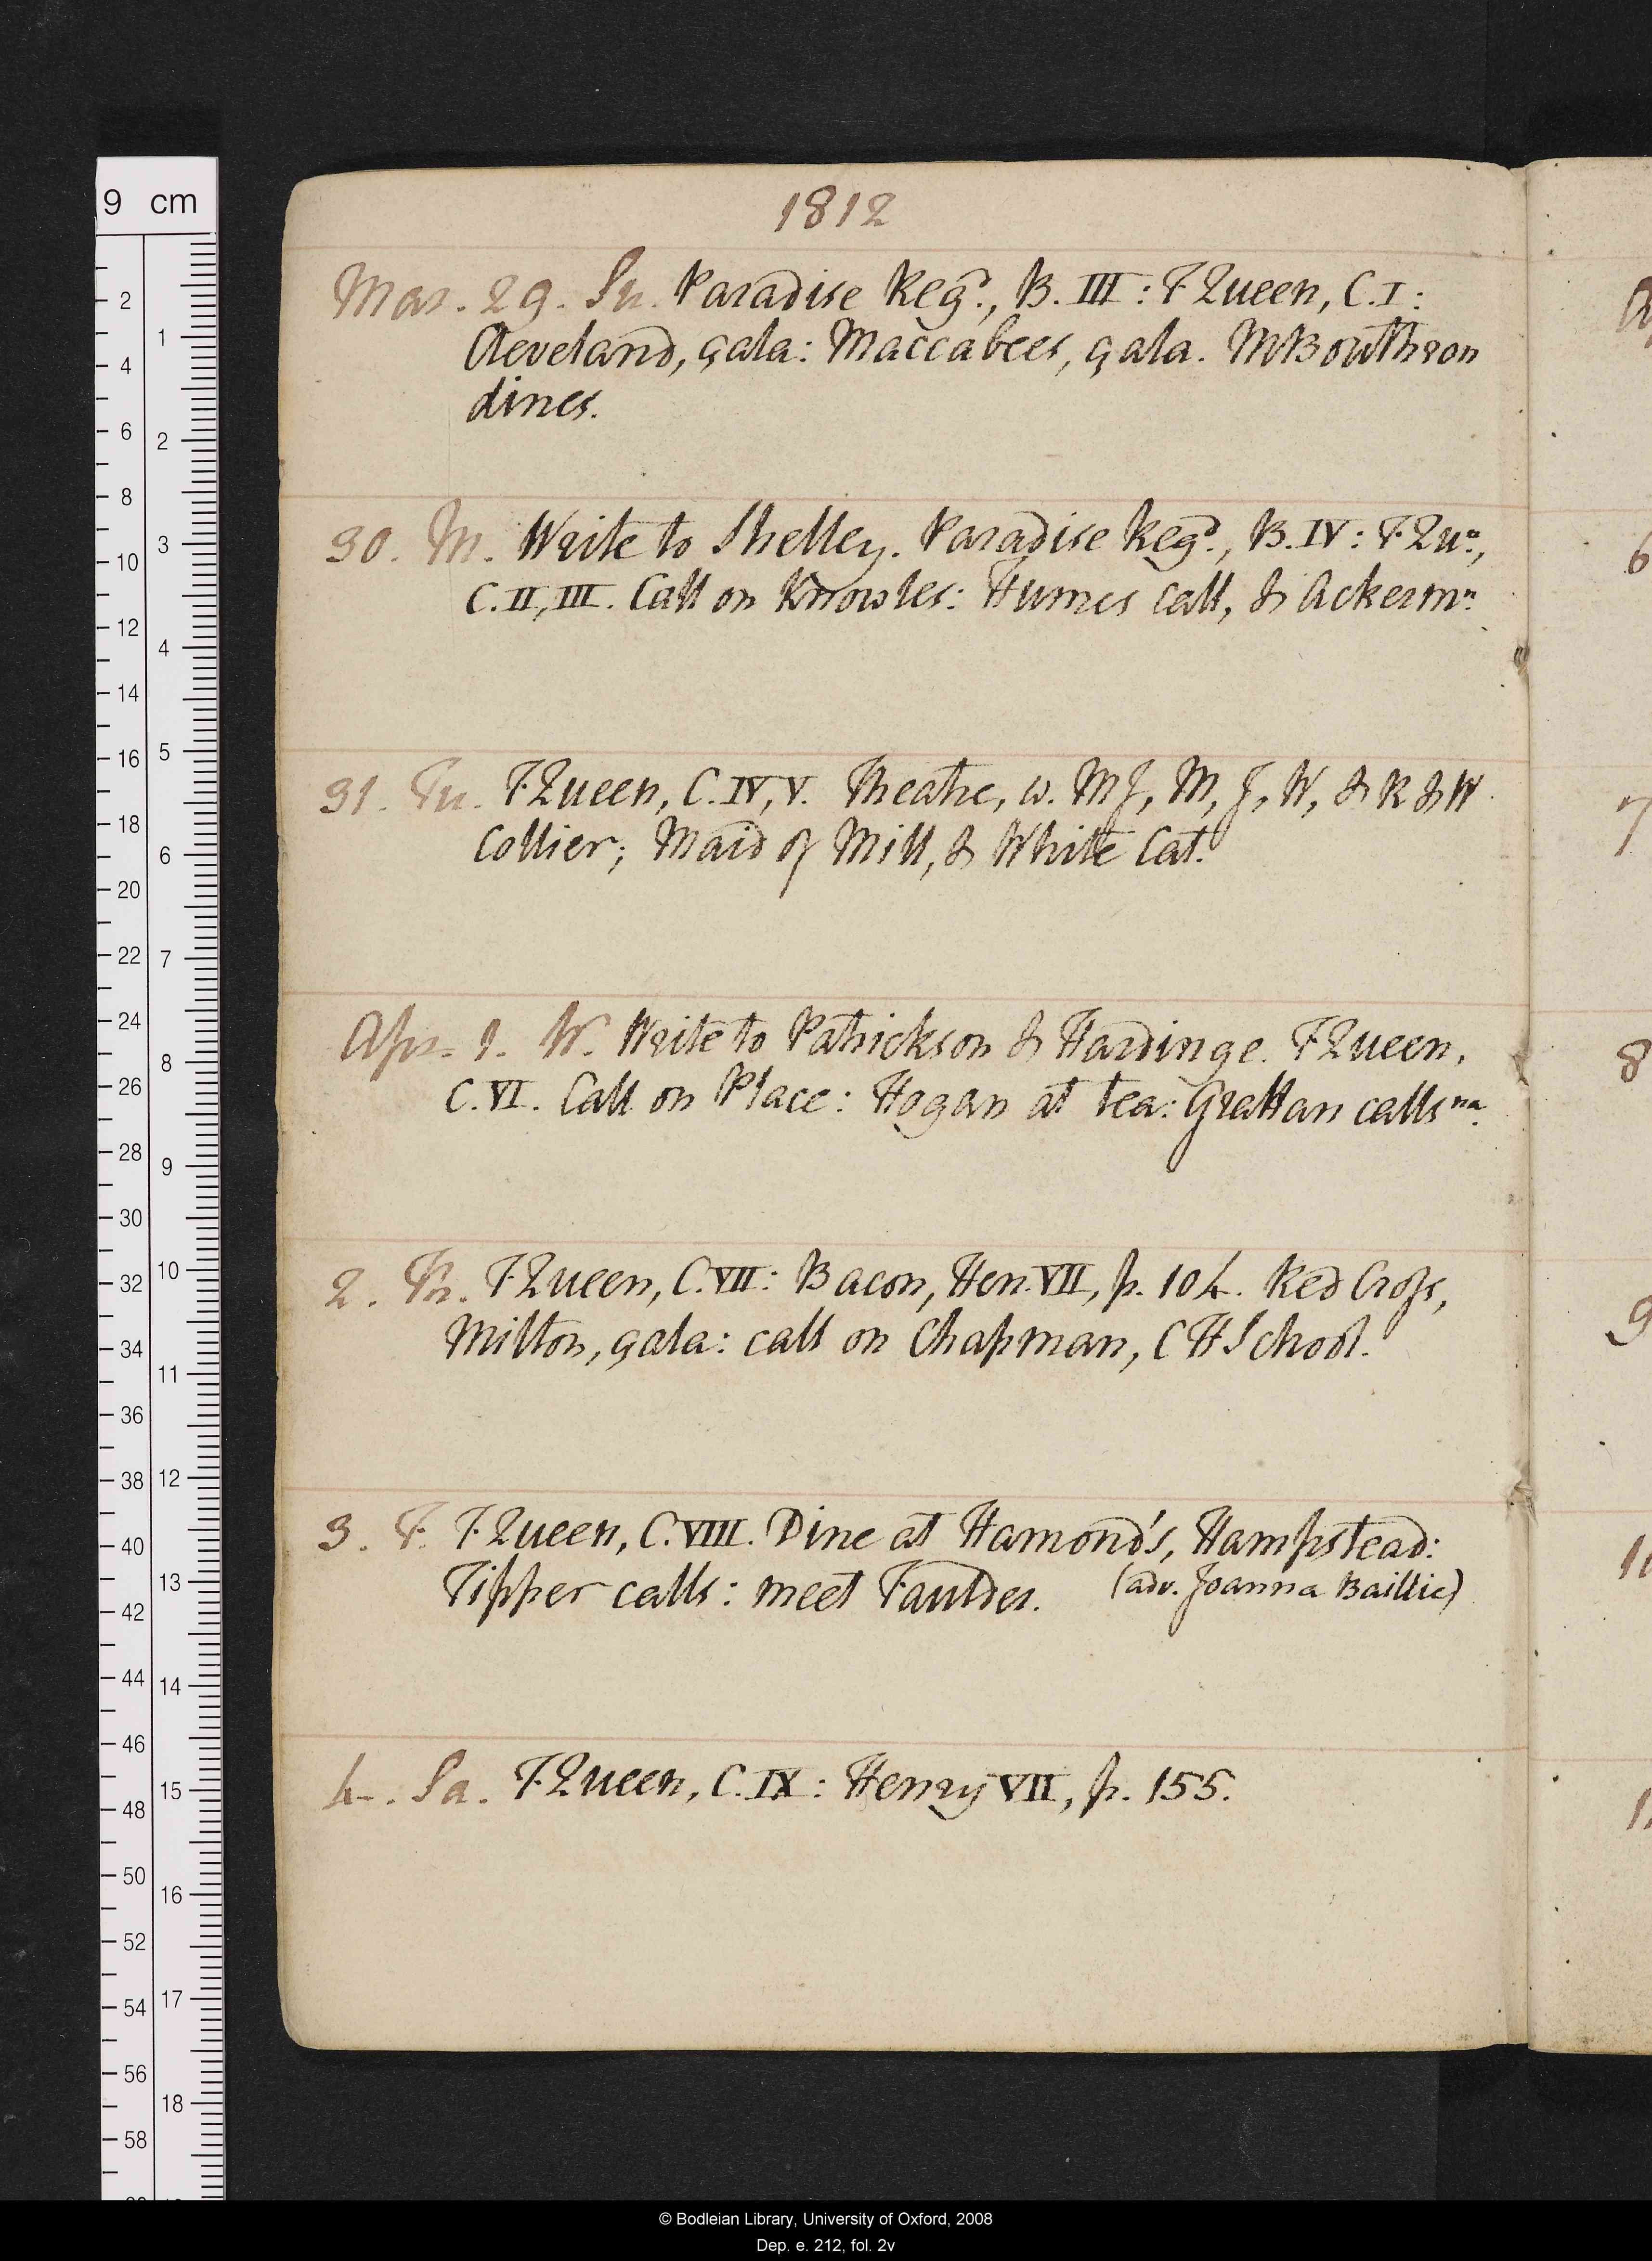 1812
Mar. 29. Su. Paradise Reg.d, B. III: F. Queen, C. I:
Cleveland, çala: Maccabees, çala. M Bouthron
dines.
30. M. Write to Shelley. Paradise Reg.d, B. IV: F. Qu.n,
C. II, III. Call on Knowles: Humes call, & Ackerm.n
31. Tu. F. Queen, C. IV, V. Theatre, w. MJ, M, J, W, & R & W
Collier; Maid of Mill, & White Cat.
Apr. 1. W. Write to Patrickson & Hardinge. F. Queen,
C. VI. Call on Place: Hogan at tea: Grattan calls na.
2. Th. F. Queen, C. VII: Bacon, Hen. VII, p. 104. Red Cross,
Milton, çala: call on Chapman, C H School.
3. F. F. Queen, C. VIII. Dine at Hamond's, Hampstead:
Tipper calls: meet Faulder. (adv. Joanna Baillie)
4. Sa. F. Queen, C. IX: Henry VII, p. 155.
9 cm
© Bodleian Library, University of Oxford, 2008
Dep. e. 212, fol. 2v